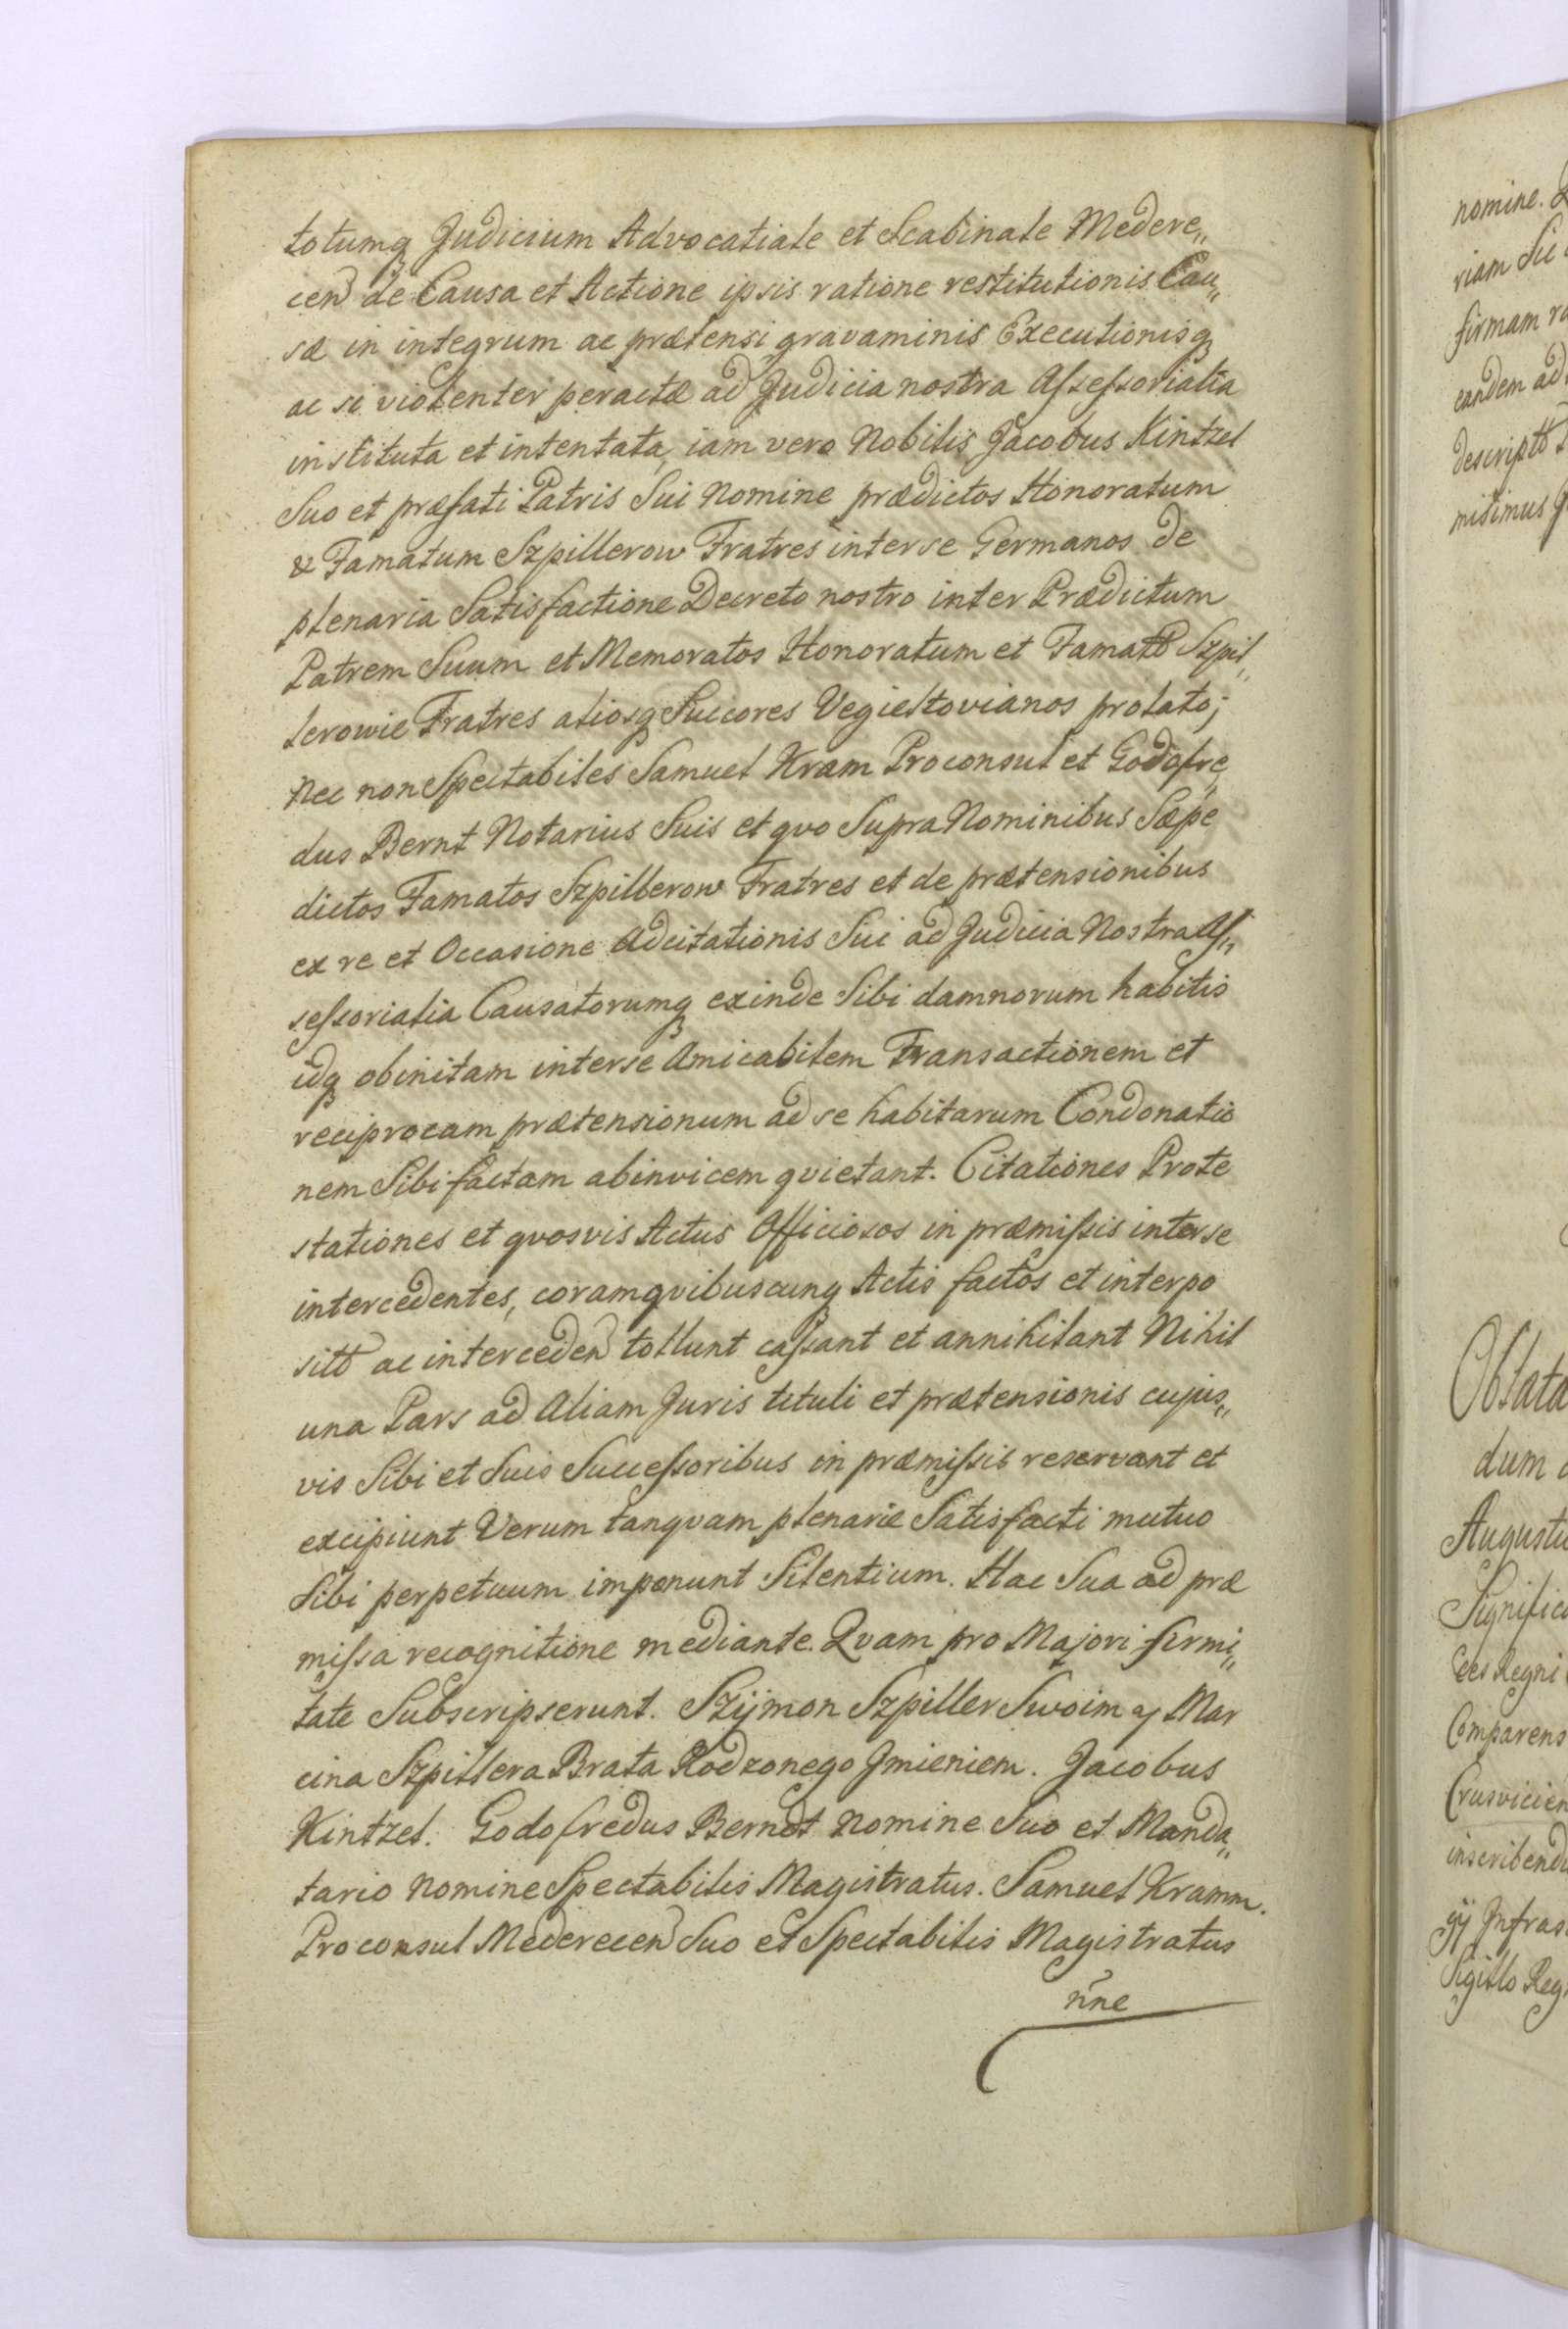 totumq Judicium Advocatiale et Scabinale Medere„
cen de Causa et Actione ipsis ratione restitutionis Cau„
sæ in integrum ac prætensi gravaminis Executionisq
ac si violenter peractæ ad Judicia nostra Assessorialia
instituta et intentata, iam vero Nobilis Jacobus Kintzel
Suo et præfati Patris Sui Nomine prædictos Honoratum
& Famatum Szpillerow Fratres interse Germanos de
plenaria Satisfactione Decreto nostro inter Prædictum
Patrem Suum et Memoratos Honoratum et Famatt Szpil„
lerowie Fratres aliosq Succores Vegielltovianos prolato;
Nec non Spectabiles Samuel Kram Proconsul et Godofre„
dus Bernt Notarius Suis et quo Supra Nominibus Sæpe
dictos Famatos Szpillerow Fratres et de prætensionibus
ex re et Occasione Adcitationis Sui ad Judicia Nostra As„
sessorialia Causatorumq exinde Sibi damnorum habitis
idq obinitam interse Amicabilem Transactionem et
reciprocam prætensionum ad se habitarum Condonatio
nem Sibi factam abinvicem quietant. Citationes Prote
stationes et quosvis Actus Officiosos in præmissis interse
intercedentes, coramquibuscunq Actis factos et interpo
sitt ac interceden tollunt cassant et annihilant Nihil
una Pars ad Aliam Juris tituli et prætensionis cujus„
vis Sibi et Suis Successoribus in præmissis reservant et
excipiunt Verum tanquam plenarie Satisfacti mutuo
Sibi perpetuum imponunt Silentium. Hac Sua ad præ
missa recognitione mediante. Quam pro Majori firmi„
tate Subscripserunt. Szijmon Szpiller Swoim y Mar
cina Szpillera Brata Rodzonego Jmieniem. Jacobus
Kintzel. Godofredus Berndt Nomine Suo et Manda„
tario Nomine Spectabilis Magistratus. Samuel Kramm.
Proconsul Noderecen Suo et Spectabilis Magistratus
nne
nomine.
riam Sic
firmam
eandem ad
descriptt
misimus
Oblata
dum
Augustu
Significa
ces Regni
Comparens
Crusvicien
inscribend
gij Infras
Sigillo Reg